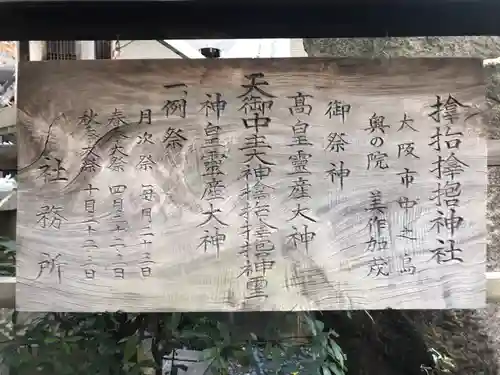 𪮷抬𪮷𪮇神社
大阪市中之島
奥の院 美作加茂
御祭神
高皇靈産大神
天御中主大神𪮷抬𪮷𪮇神
神皇靈産大神
一例祭
月次祭 毎月二十三日
春季大祭 四月二十二、三日
秋季大祭 十月二十二、三日
社務所